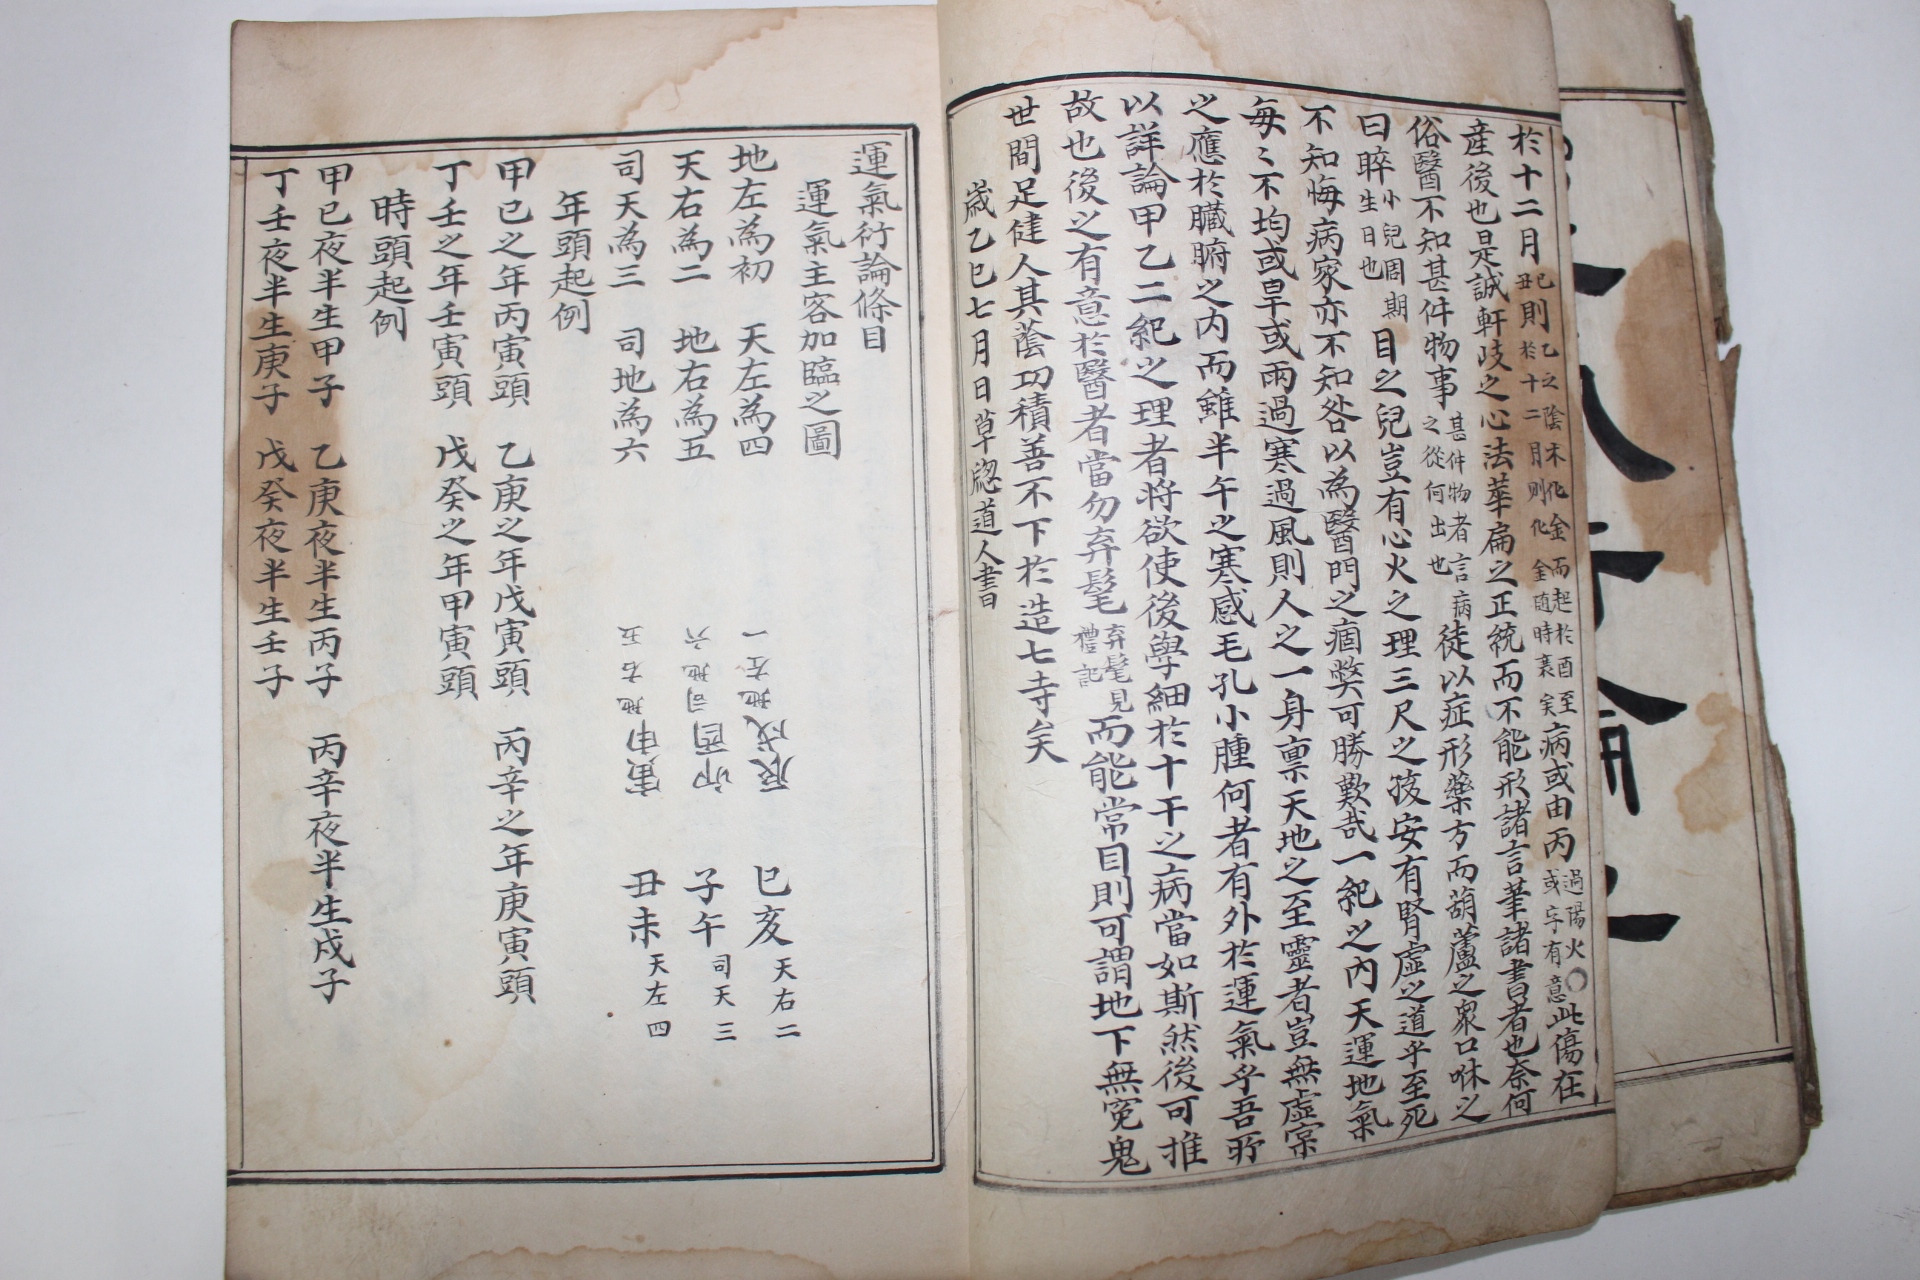 於十二月
巳丑
則
乙之陰木化金而起於酉至
於十二月則化金隨時衰矣
病或由丙
過陽火〇
或字有意
此傷在
産後也是誠軒岐之心法華扁之正統而不能形諸言筆諸書者也奈何
俗醫不知甚件物事
甚件物者言病
之從何出也
徒以症形藥方而葫蘆之衆口咻之
曰晬
小兒周期
生日也
目之兒豈有心火之理三尺之孩安有腎虛之道乎至死
不知悔病家亦不知咎以為醫門之痼弊可勝歎哉一紀之內天運地氣
每〻不均或旱或雨過寒過風則人之一身稟天地之至靈者豈無虛実
之應於臟腑之內而雖半午之寒感毛孔小腫何者有外於運氣乎吾所
以詳論甲乙二紀之理者將欲使後學細於十干之病當如斯然後可推
故也後之有意於醫者當勿弃髦
弃髦見
禮記
而能常目則可謂地下無冤鬼
世間足健人其蔭功積善不下於造七寺矣
歲乙巳七月日草窓道人書
運氣衍論條目
運氣主客加臨之圖
地左為初 天左為四 一 地左 辰戌 巳亥 天右二
天右為二 地右為五 六 司地 卯酉 子午 司天三
司天為三 司地為六 五 地右 寅申 丑未 天左四
年頭起例
甲己之年丙寅頭 乙庚之年戊寅頭 丙辛之年庚寅頭
丁壬之年壬寅頭 戊癸之年甲寅頭
時頭起例
甲己夜半生甲子 乙庚夜半生丙子 丙辛夜半生戊子
丁壬夜半生庚子 戊癸夜半生壬子